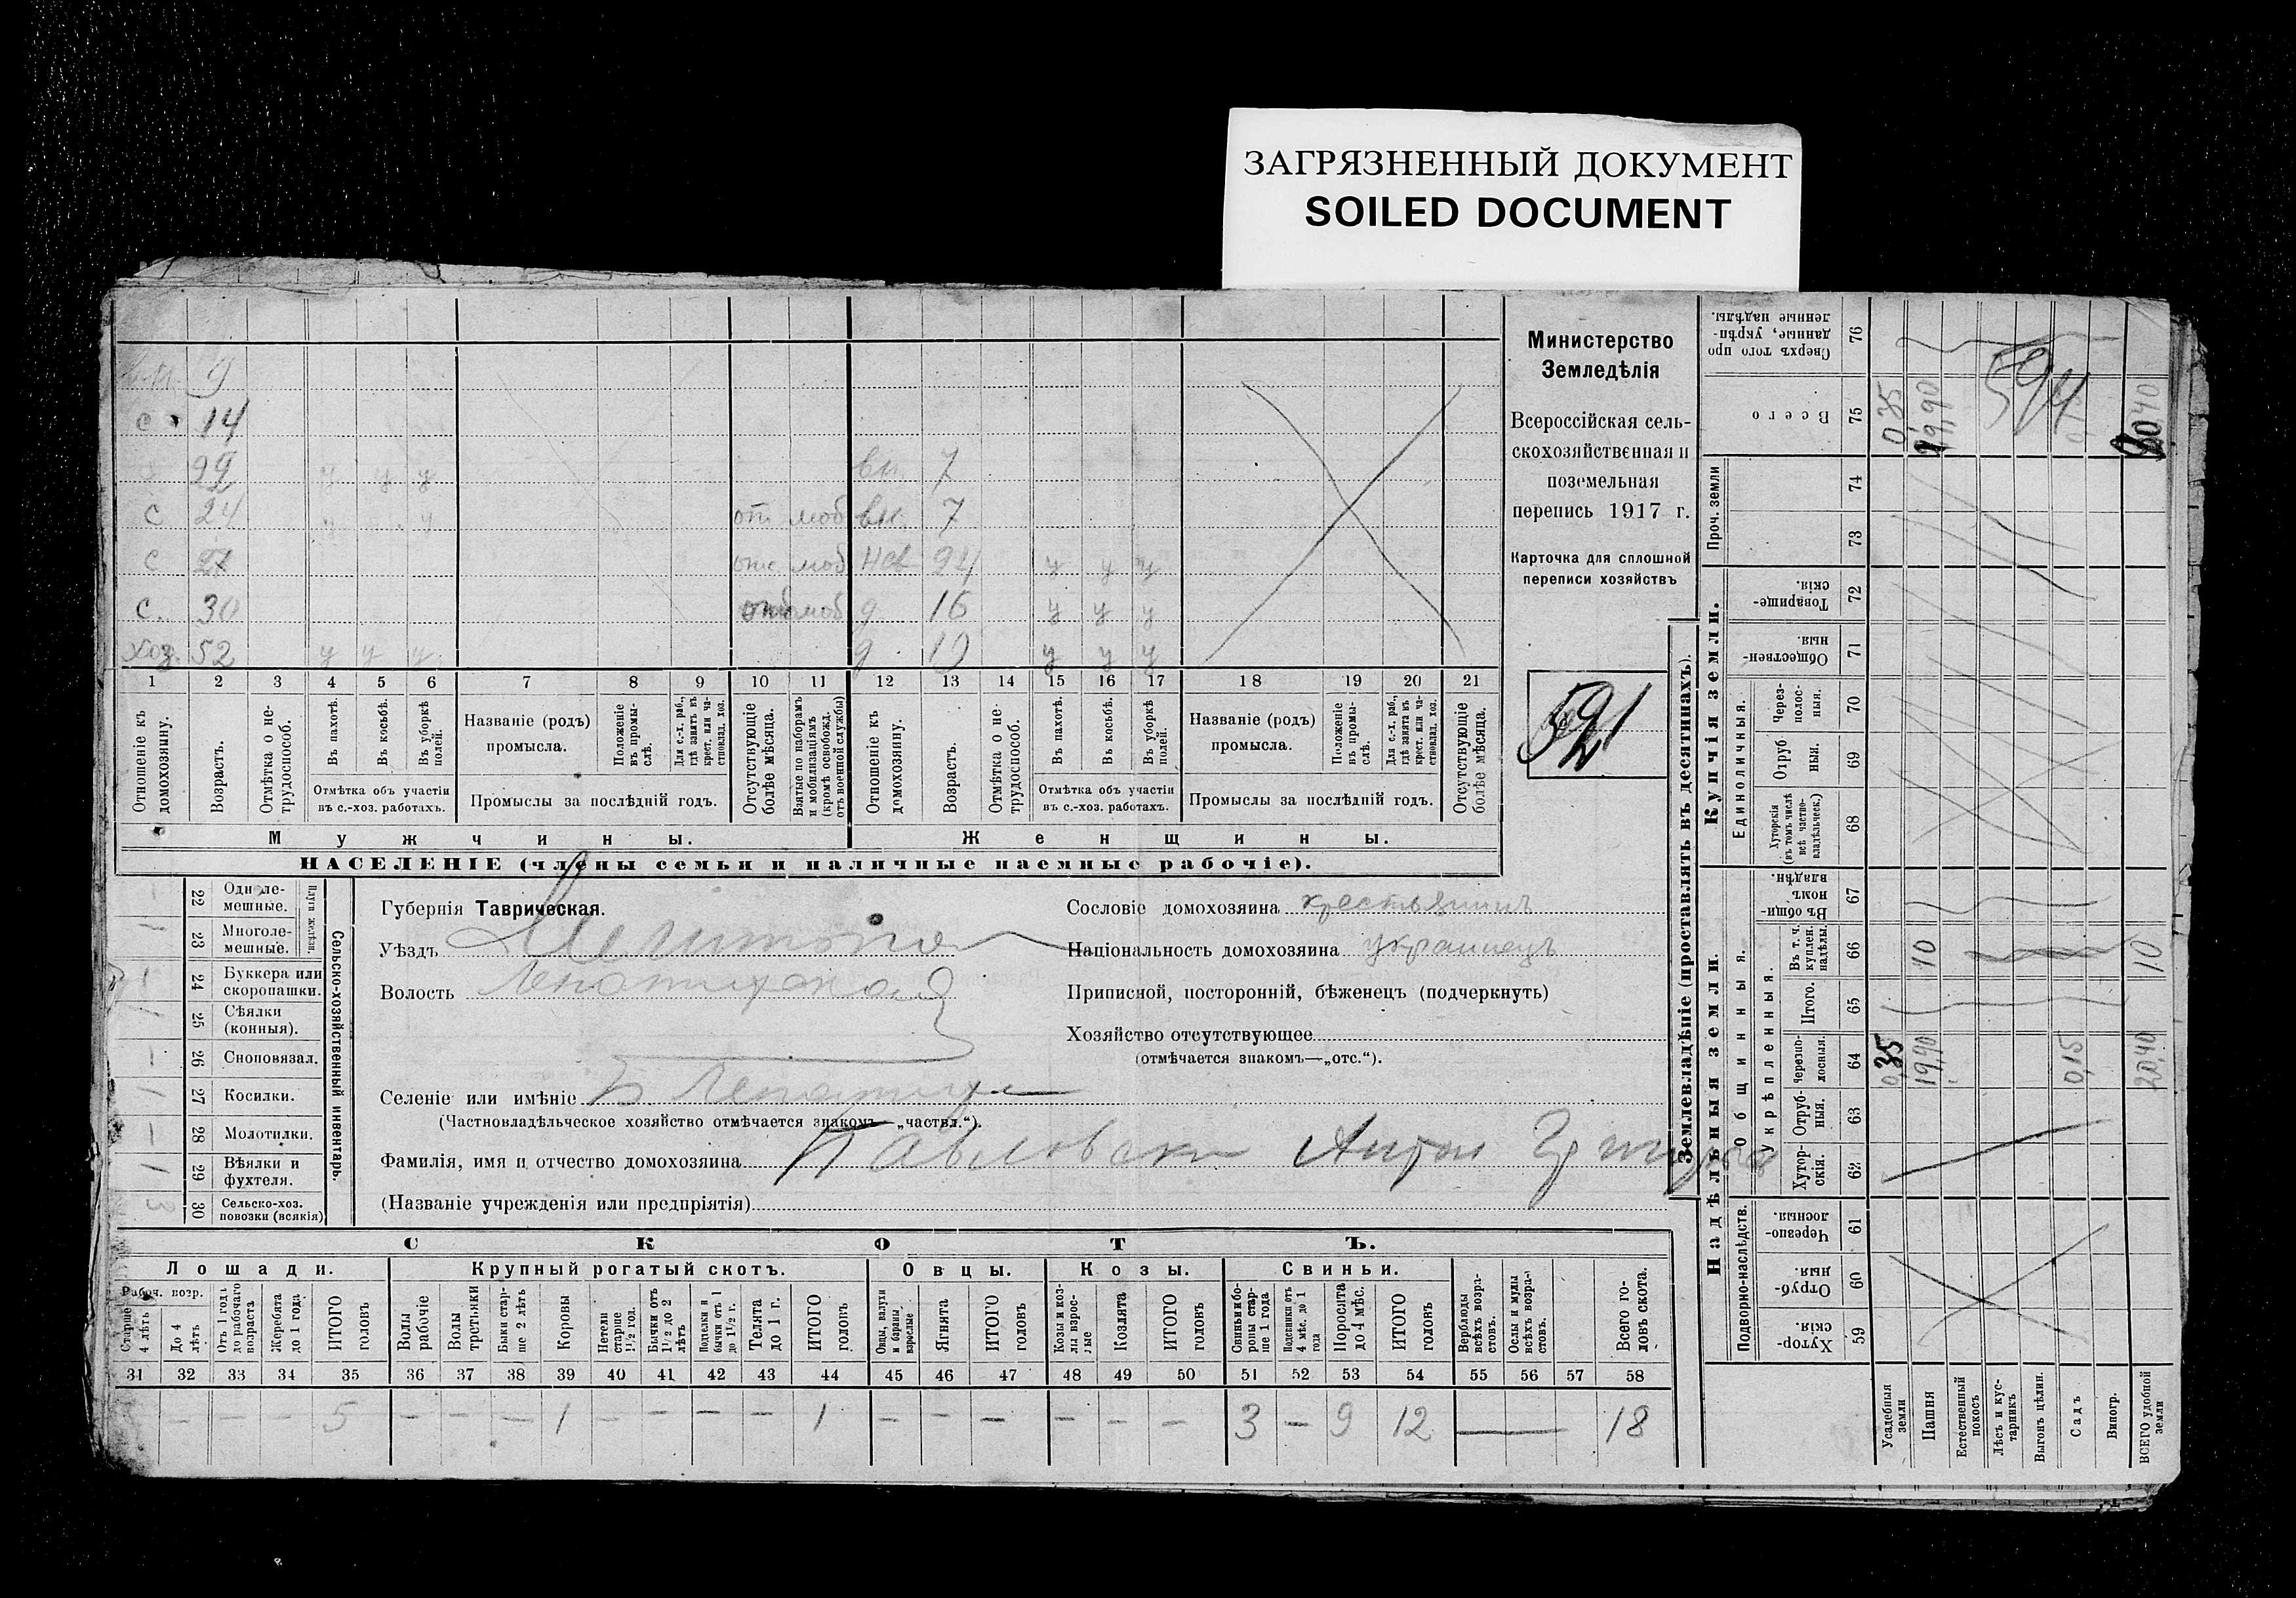 ЗАГРЯЗНЕННЫЙ ДОКУМЕНТ
SOILED DOCUMENT
9
с 14
29 у у у вн. 7
с 24 у у от. моб вн. 7
с 27 моб Нев 24 у у у
с. 30 моб д 16 у у у
Хоз. 52 у у у. д. 19 у у у
1 2 3 4 5 6 7 8 9 10 11 12 13 14 15 16 17 18 19 20 21
Отношеніе къ домохозяину.
Возрастъ.
Отмѣтка о не-трудоспособ.
Въ пахотѣ.
Въ косьбѣ.
Въ уборкѣ полей.
Отмѣтка объ участіи
въ с.-хоз. работахъ.
Названіе (родъ)
промысла.
Положеніе въ промы-слѣ.
Для с.-х. раб., гдѣ занятъ въ крест. или ча-стновлад. хоз.
Промыслы за послѣдній годъ.
Отсутствующіе болѣе мѣсяца.
Взятые по наборамъ и мобилизаціямъ (кромѣ освобожд. отъ военной службы)
Отношеніе къ домохозяину.
Возрастъ.
Отмѣтка о не-трудоспособ.
Въ пахотѣ.
Въ косьбѣ.
Въ уборкѣ полей.
Отмѣтка объ участіи
въ с.-хоз. работахъ.
Названіе (родъ)
промысла.
Положеніе въ промы-слѣ.
Для с.-х. раб., гдѣ занята въ крест. или ча-стновлад. хоз.
Промыслы за послѣдній годъ.
Отсутствующіе болѣе мѣсяца.
Мужчины. Женщины.
НАСЕЛЕНІЕ (члены семьи и наличные наемные рабочіе).
Министерство
Земледѣлія
Всероссійская сель-
скохозяйственная и
поземельная
перепись 1917 г.
Карточка для сплошной
переписи хозяйствъ
521
Сельско-хозяйственный инвентарь.
Плуги желѣзн.
22 Одноле-мешные.
23 Многоле-мешные.
24 Буккера или скоропашки.
25 Сѣялки (конныя).
26 Сноповязал.
27 Косилки.
28 Молотилки.
29 Вѣялки и фухтеля.
30 Сельско-хоз. повозки (всякія) 3
Губернія Таврическая.
Уѣздъ Мелитопол
Волость Лепатихская
Селеніе или имѣніе Б Лепатиха
(Частновладѣльческое хозяйство отмѣчается знакомъ „частвл.“).
Фамилія, имя и отчество домохозяина Павловски Антон
(Названіе учрежденія или предпріятія)
Сословіе домохозяина крестьянинъ
Національность домохозяина украинецъ
Приписной, посторонній, бѣженецъ (подчеркнуть)
Хозяйство отсутствующее
(отмѣчается знакомъ—„отс.“).
СКОТЪ.
Лошади. Крупный рогатый скотъ. Овцы. Козы. Свиньи.
Рабоч. возр.
Старше 4 лѣтъ
До 4 лѣтъ
Отъ 1 года до рабочаго возраста
Жеребята до 1 года.
ИТОГО головъ
Волы рабочіе
Волы третьяки
Быки стар-ше 2 лѣтъ
Коровы
Нетели старше 1½ год.
Бычки отъ 1½ до 2 лѣтъ
Подтелки и бычки отъ 1 до 1½ г.
Телята до 1 г.
ИТОГО головъ
Овцы, валухи и бараны взрослые
Ягнята
ИТОГО головъ
Козы и коз-лы взрос-лые
Козлята
ИТОГО головъ
Свиньи и бо-ровы стар-ше 1 года
Подсвинки отъ 4 мѣс. до 1 года
Поросята до 4 мѣс.
ИТОГО головъ
Верблюды всѣхъ возра-стовъ.
Ослы и мулы всѣхъ возра-стовъ.
Всего го-ловъ скота.
31 32 33 34 35 36 37 38 39 40 41 42 43 44 45 46 47 48 49 50 51 52 53 54 55 56 57 58
— — — 5 — — — 1 — — — — 1 — — — — — — 3 — 9 12 — 18
Землевладѣніе (проставлять въ десятинахъ).
Купчія земли.
Надѣльныя земли.
Сверхъ того про данные, укрѣп-ленные надѣлы. 76
Всего 75 0,35 19,90 20,40
594
Проч. земли 74 73
Товарище-скія. 72
Обществен-ныя. 71
Единоличныя.
Через-полос-ныя. 70
Отруб ныя. 69
Хуторскія (въ томъ числѣ всѣ частно-владѣльческ.) 68
Общинныя.
Въ общи-номъ владѣн. 67
Укрѣпленныя.
Въ т. ч. куплен. надѣлы. 66 10 10
Итого. 65
Черезпо-лосныя. 64 0,35 19,90 0,15 20,40
Отруб-ныя. 63
Хутор-скія. 62
Подворно-наслѣдств.
Черезпо-лосныя. 61
Отруб-ныя. 60
Хутор-скія. 59
Усадебныя земли
Пашня
Естественный покосъ
Лѣсъ и кус-тарникъ
Выгонъ цѣлин.
Садъ
Виногр.
ВСЕГО удобной земли